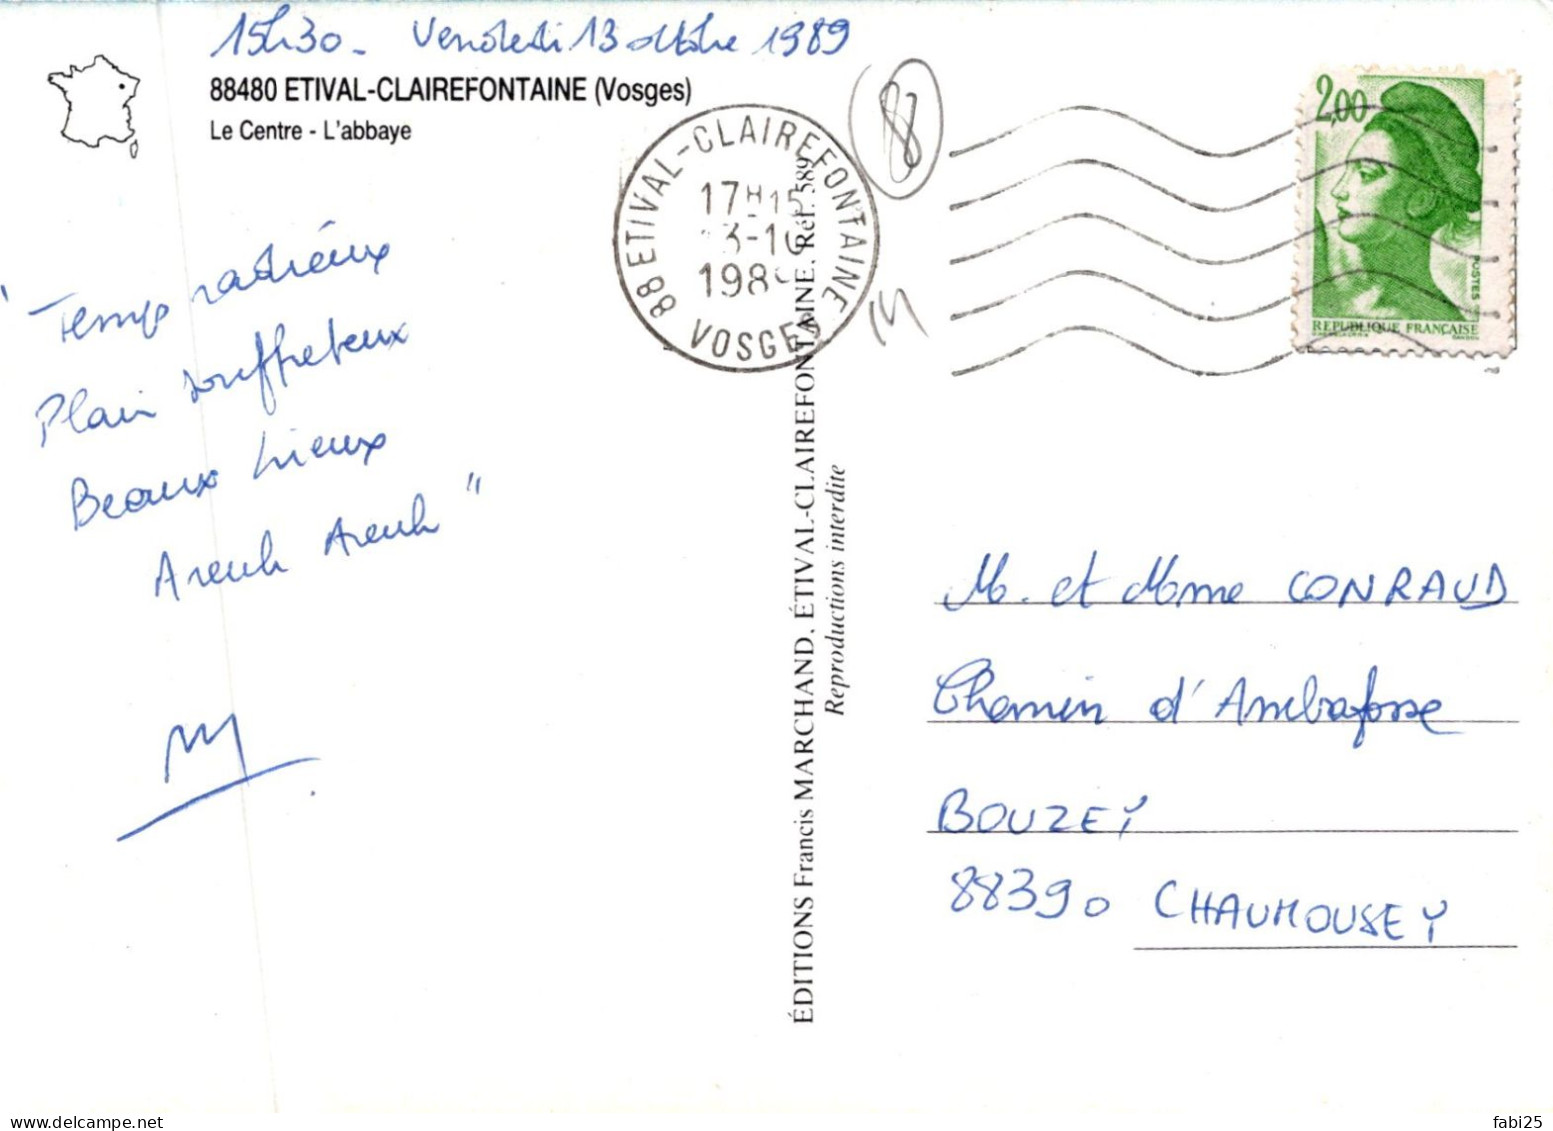 15h30 - Vendredi 13 octobre 1989
88480 ETIVAL-CLAIREFONTAINE (Vosges)
Le Centre - L'abbaye
88 ETIVAL-CLAIREFONTAINE
17H15
13-10
198
VOSGES
88
2,00
POSTES
REPUBLIQUE FRANÇAISE
"Temps radieux
Plain souffreteux
Beaux lieux
Areuh Areuh"
ÉDITIONS Francis MARCHAND, ÉTIVAL-CLAIREFONTAINE. Réf. 589
Reproductions interdite
M. et Mme CONRAUD
Chemin d'Ambafosse
BOUZEY
88390 CHAUMOUSEY
delcampe.net
fabi25